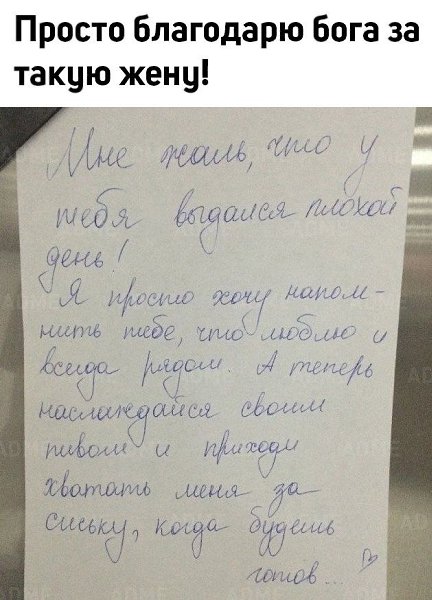 Просто благодарю бога за
такую жену!
Мне жаль, что у
тебя выдался плохой
день!
Я просто хочу напом-
нить тебе, что люблю и
всегда рядом. А теперь
наслаждайся своим
пивом и приходи
хватать меня за
сиську, когда будешь
готов...